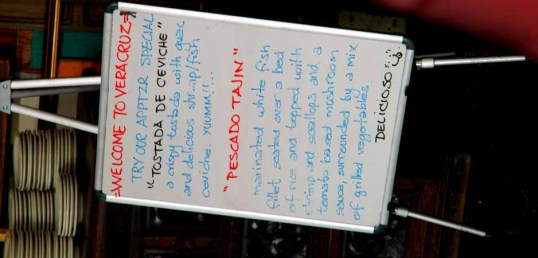 =WELCOME TO VERACRUZ=
TRY OUR APPTZR SPECIAL
"TOSTADA DE CEVICHE"
a crispy tostada with guac
and delicious shrimp/fish
ceviche. YUUMM!!...
"PESCADO TAJIN"
marinated white fish
fillet, seated over a bed
of rice and topped with
shrimp and scallops and a
tomato based mushroom
sauce, surrounded by a mix
of grilled vegetables
DELICIOSO!!